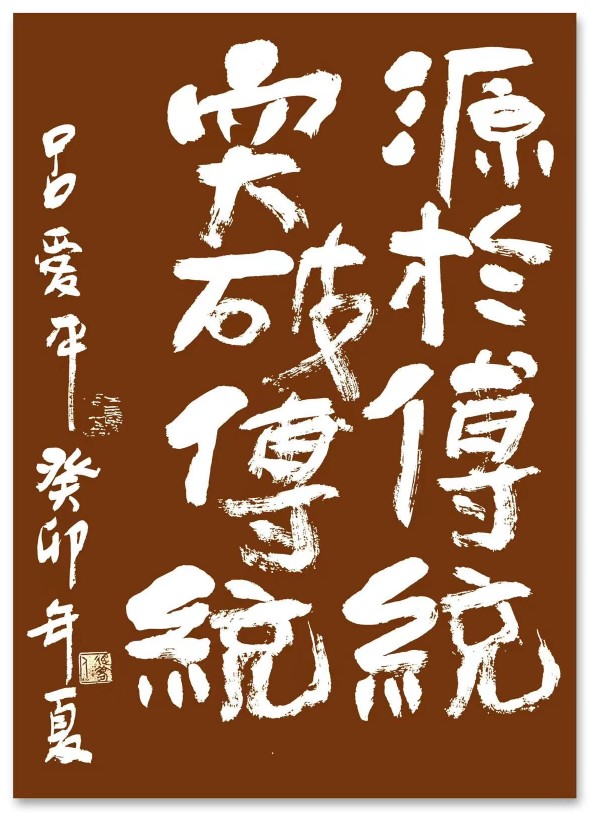 源於傳統
突破傳統
吕爱平 癸卯年夏